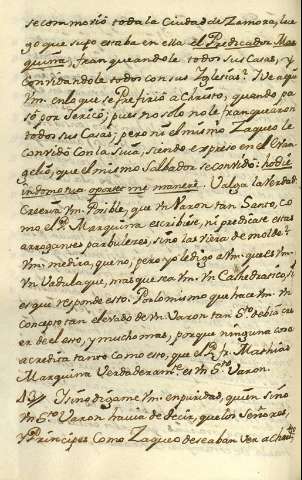 se commovió toda la Ciudad de Zamora, lue
go que supo estaba en ella el Predicador Mar
quina, franqueandole todos sus Casas, y
Convidandole todos con sus Iglesias. Ve aqui
Vm. en lo que se Prefirió a Christo, quando pa
só por Jericó; pues no solo no le franquearon
todos sus Casas; pero ni el mismo Zaqueo le
Convidó con la Suia, siendo expreso en el Evan
gelio, que el mismo Salvador se convidó: hodie
in domo tua oportet me manere. Valga la Verdad.
Creerá Vm. Posible, que Vn Varon tan Santo, co
mo el P. Marquina escribiese, ni predicase estas
arrogantes parbuleces, sino las viera de molde?
Vm. medirá, que no; pero yo le digo a Vm. que es Vm.
Vn Vadulaque, mas que sea Vm. Vn Cathedratico, si
es que responde esto. Por lo mismo que hace Vm. Vn
Concepto tan elevado de Vn Varon tan Sto. debía cre
er de el eso, y mucho mas, porque ninguna cosa
acredita tanto como eso, que el P. Fr. Mathias
Marquina Verdaderamte. es Vn Sto. Varon.
43// Y sino digame Vm. en puridad, quien sino
Vn Sto. Varon havia de decir, que los Señores,
y Principes Como Zaqueo deseaban ver a